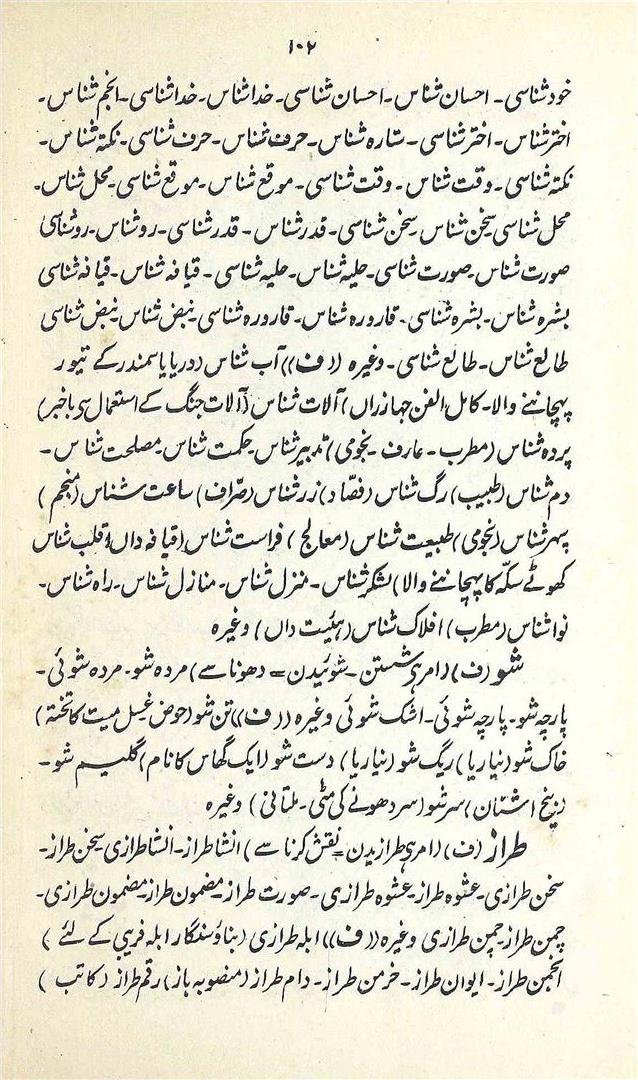 ۱۰۲
خود شناسی۔ احسان شناس۔ احسان شناسی۔ خدا شناس۔ خدا شناسی۔ انجم شناس۔
اختر شناس۔ اختر شناسی۔ ستارہ شناس۔ حرف شناس۔ حرف شناسی۔ نکتہ شناس۔
نکتہ شناسی۔ وقت شناس۔ وقت شناسی۔ موقع شناس۔ موقع شناسی۔ محل شناس۔
محل شناسی۔ سخن شناس۔ سخن شناسی۔ قدر شناس۔ قدر شناسی۔ رو شناس۔ رو شناسی
صورت شناس۔ صورت شناسی۔ حلیہ شناس۔ حلیہ شناسی۔ قیافہ شناس۔ قیافہ شناسی
بشرہ شناس۔ بشرہ شناسی۔ قارورہ شناس۔ قارورہ شناسی۔ نبض شناس۔ نبض شناسی
طالع شناس۔ طالع شناسی۔ وغیرہ ((ف)) آب شناس (دریا یا سمندر کے تیور
پہچاننے والا۔ کامل الفن جہازراں) آلات شناس (آلات جنگ کے استعمال سے باخبر)
پردہ شناس (مطرب۔ عارف۔ نجومی) تدبیر شناس۔ حکمت شناس۔ مصلحت شناس۔
دم شناس (طبیب) رگ شناس (فصّاد) زر شناس (صرّاف) ساعت شناس (منجم)
سپہر شناس (نجومی) طبیعت شناس (معالج) فراست شناس (قیافہ داں) قلب شناس
کھوٹے سکّہ کا پہچاننے والا) لشکر شناس۔ منزل شناس۔ منازل شناس۔ راہ شناس۔
نوا شناس (مطرب) افلاک شناس (ہیئت داں) وغیرہ
شو (ف) (امر ہے شستن۔ شوئیدن = دھونا سے) مردہ شو۔ مردہ شوئی۔
پارچہ شو۔ پارچہ شوئی۔ اشک شوئی وغیرہ ((ف)) تن شو (حوض غسل میت کا تختہ)
خاک شو (نیاریا) ریگ شو (نیاریا) دست شو (ایک گھاس کا نام) گلیم شو۔
(بیخ اشنان) سر شو (سر دھونے کی مٹی۔ ملتانی) وغیرہ
طراز (ف) (امر ہے طرازیدن = نقش کرنا سے) انشا طراز۔ انشا طرازی۔ سخن طراز۔
سخن طرازی۔ عشوہ طراز۔ عشوہ طرازی۔ صورت طراز۔ مضمون طراز۔ مضمون طرازی۔
چمن طراز۔ چمن طرازی وغیرہ ((ف)) ابلہ طرازی (بناؤ سنگار ابلہ فریبی کے لئے)
انجمن طراز۔ ایوان طراز۔ خرمن طراز۔ دام طراز (منصوبہ باز) رقم طراز (کاتب)